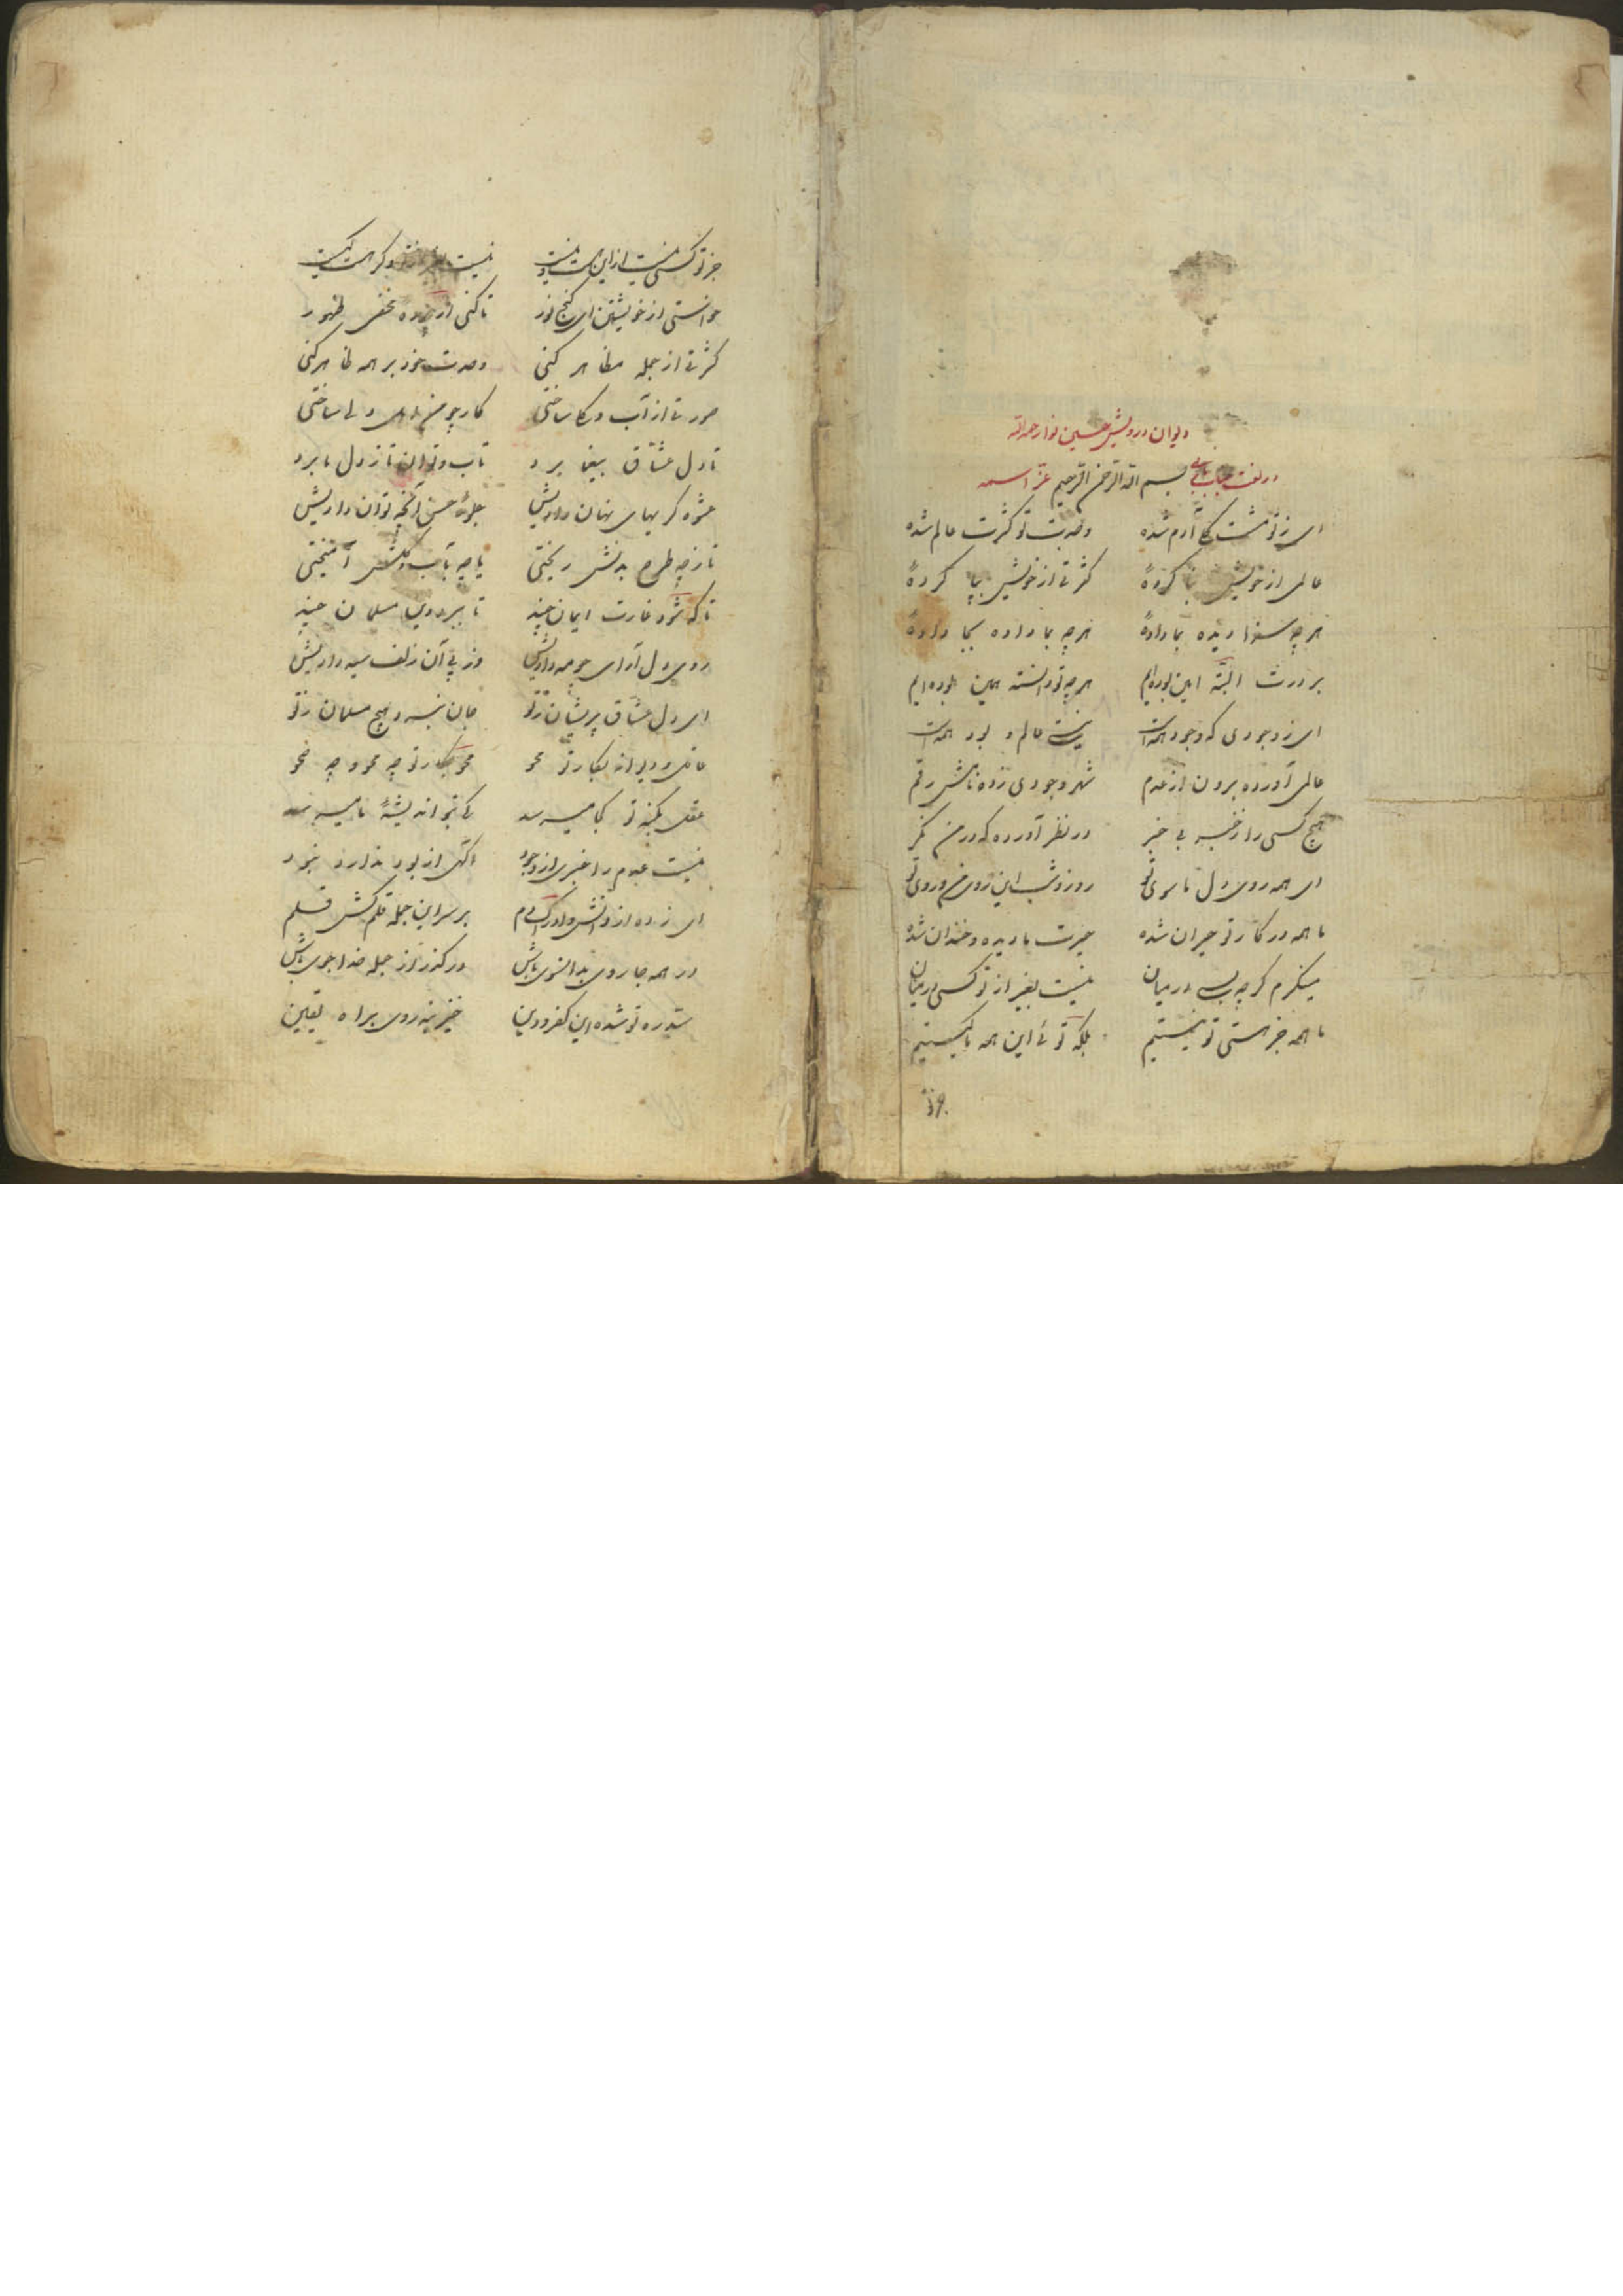 دیوان درویش حسین نوا رحمه الله
در نعت جناب باری بسم الله الرحمن الرحیم عز اسمه
ای ز تو مشت گل آدم شده وحدت تو کثرت عالم شده
عالمی از خویش بنا کردهٔ کثرتی از خویش بپا کردهٔ
هرچه سزا دیده بما دادهٔ هرچه بما داده بجا دادهٔ
بر درت البته این بوده‌ایم هرچه تو دانسته همین بوده‌ایم
ای ز وجودی که وجود همه است نیست عالم و بود همه است
عالمی آورده برون از عدم شهر وجودی زده نامش رقم
هیچ کسی را ز خبر بی خبر در نظر آورده که در من نگر
ای همه روی دل ما سوی تو روز و شب این روی من و روی تو
ما همه در کار تو حیران شده حیرت ما دیده و خندان شده
مینگرم گرچه بسی در میان نیست بغیر از تو کسی در میان
ما همه جز هستی تو نیستیم بلکه توئی این همه ما کیستیم
جز تو
جز تو کسی نیست ازین هست و نیست نیست بغیر از تو وگر هست کیست
خواستی از خویشتن ای گنج نور تا کنی از پرده مخفی ظهور
کثرتی از جمله مظاهر کنی وحدت خود بر همه ظاهر کنی
صورتی از آب و گل ساختی کار چو من دلی ساختی
تا دل عشاق بیغما برد تاب و توان تا ز دل ما برد
عشوه گریهای نهان دادیش جلوهٔ حسن آنچه توان دادیش
تا ز چه طرح بدنش ریختی یا چه بآب و گلش آمیختی
تا که شود غارت ایمان چند تا ببرد دین مسلمان چند
روی دل آرای چو مه دادیش وز پی آن زلف سیه دادیش
ای دل عشاق پریشان ز تو جان گبر و هیچ مسلمان ز تو
عاقل و دیوانه بکار تو محو محو بکار تو چه محو و چه نحو
عقل بکنه تو کجا میرسد کی بتو اندیشهٔ ما میرسد
نیست عدم را خبری از وجود آگهی از بود ندارد نبود
ای زده از دانش و ادراک دم بر سر این جمله قلم کش قلم
در همه جا روی بدانسوی باش در گذر از جمله خدا جوی باش
سد ره تو شده این کفر و دین خیز بنه روی براه یقین